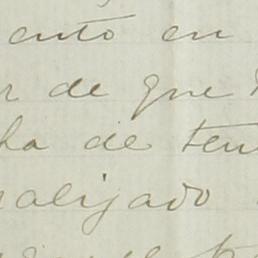 ento en
r de que
ha de ten
ralizado